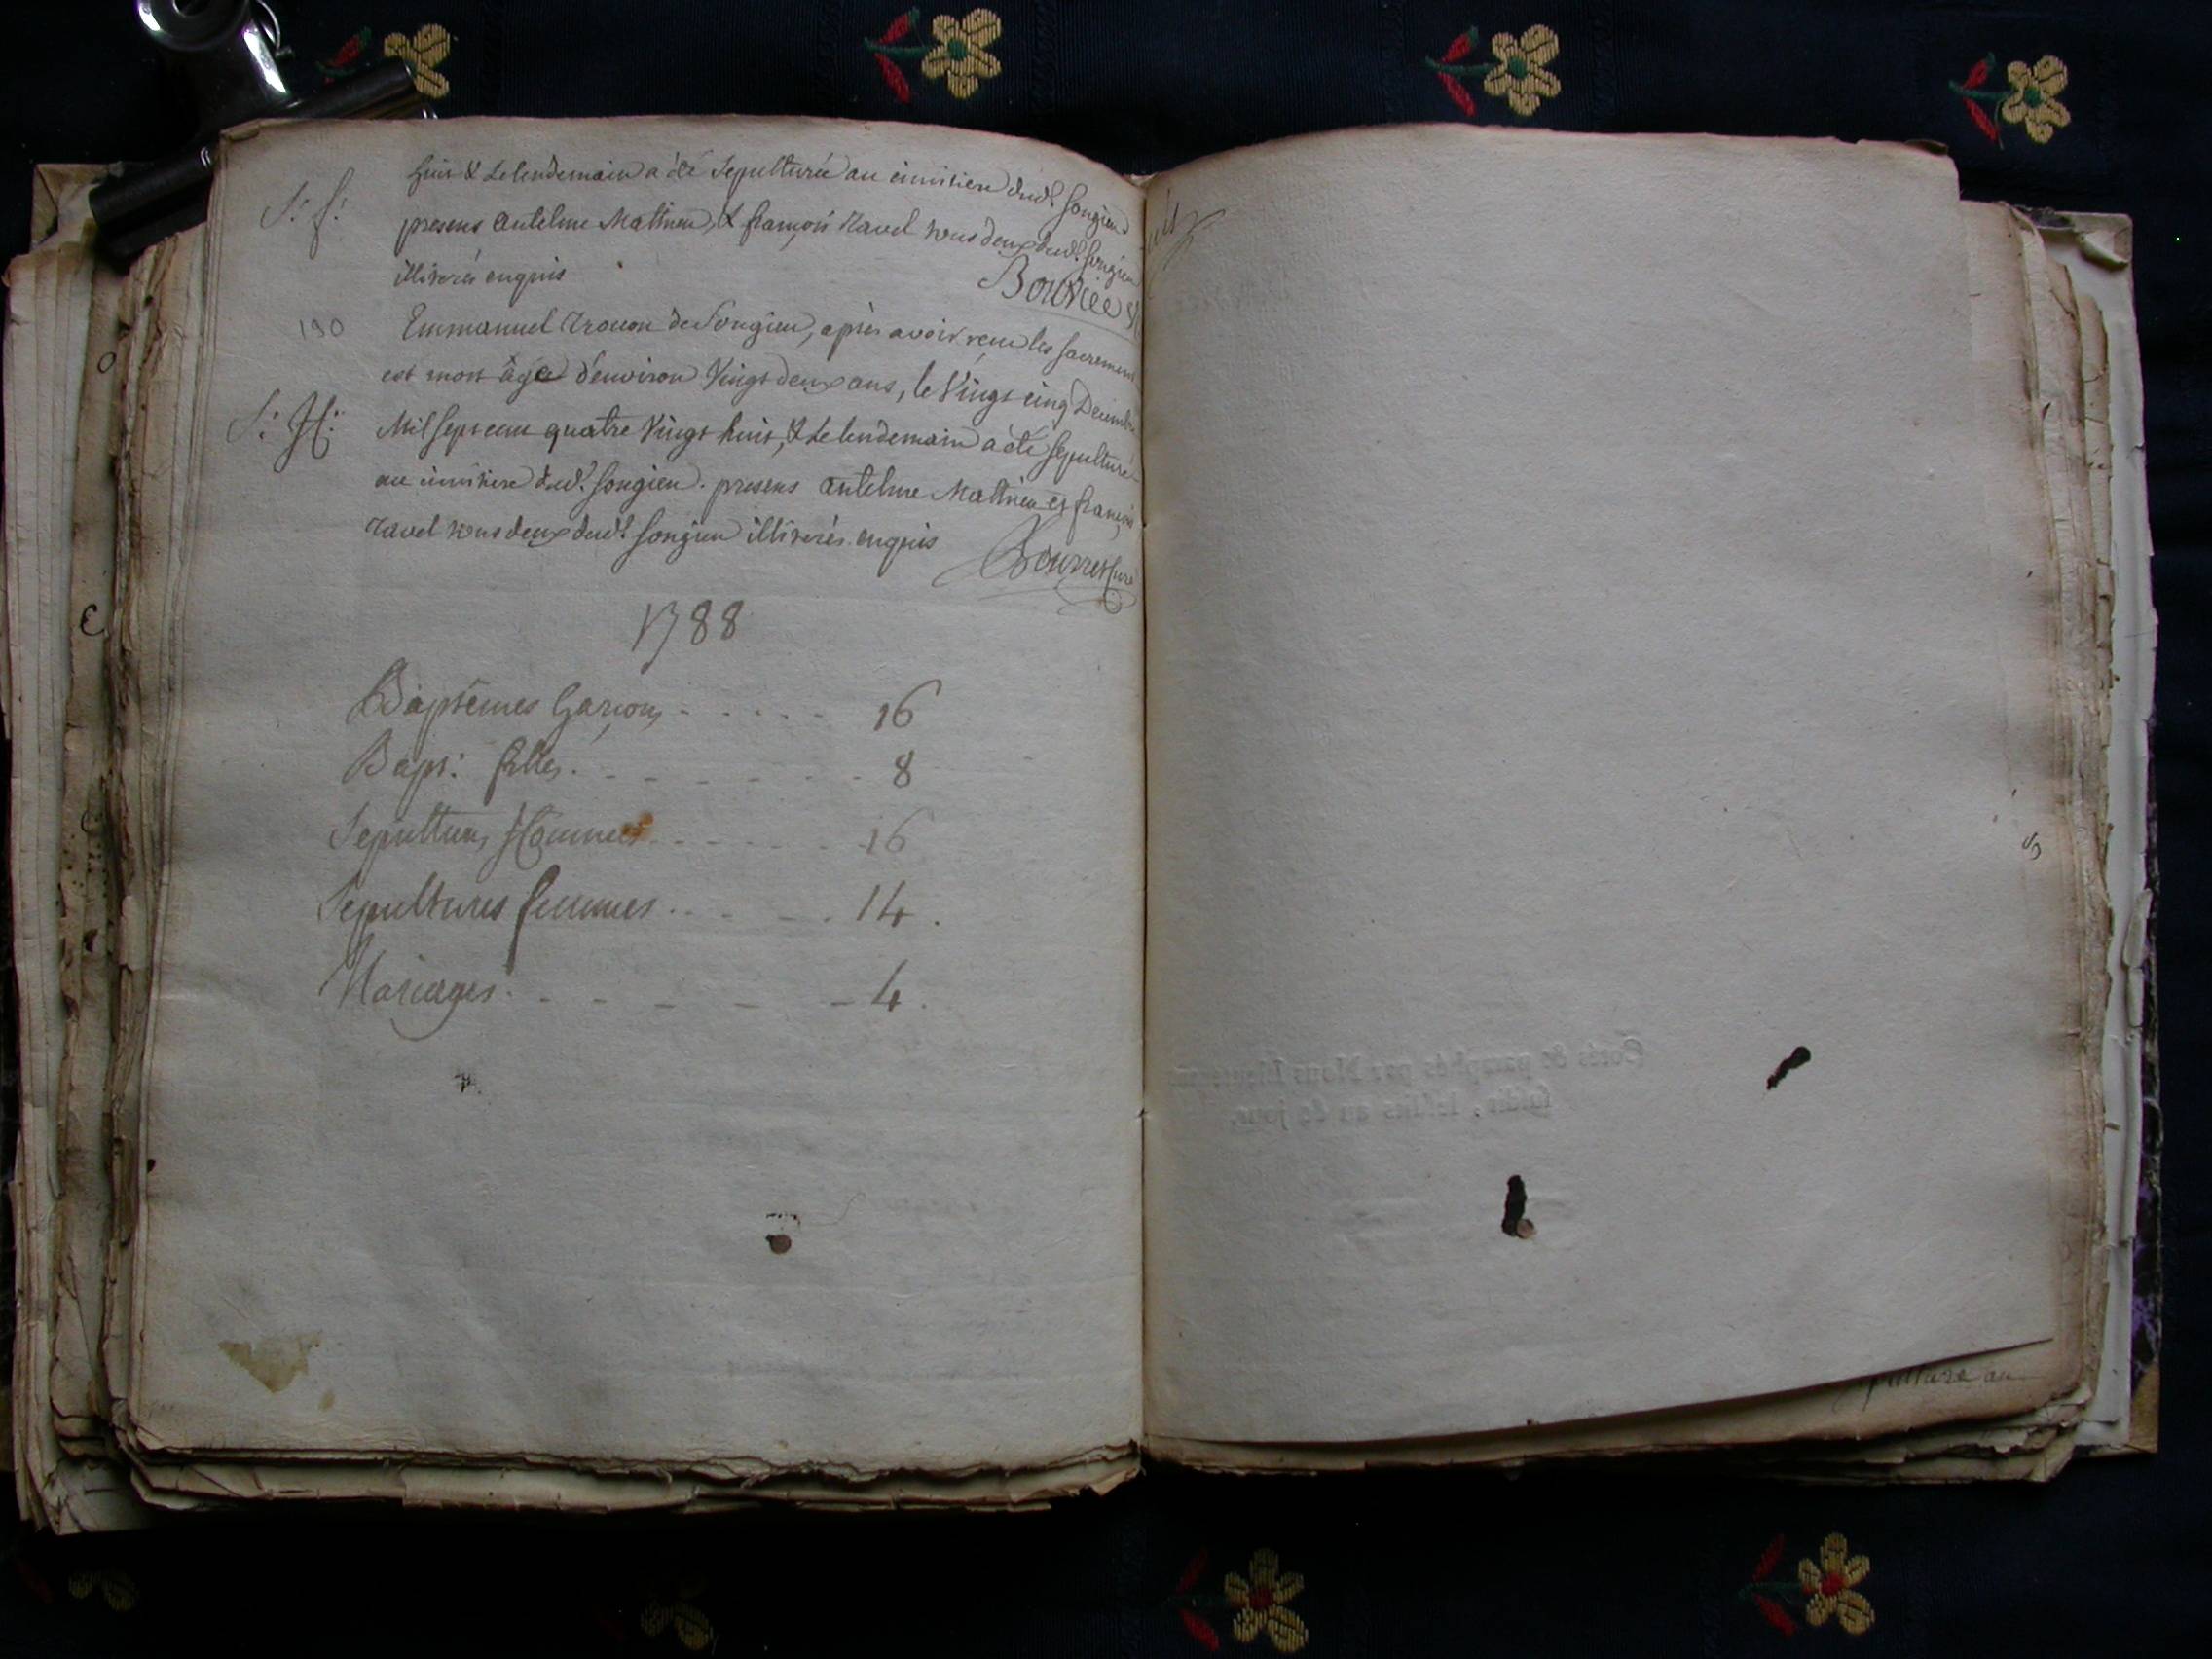 huit & le lendemain a été sepulturée au cimitiere dudt. songieu
S: f: presens antelme Mathieu, & françois Ravel tous deux dudt. songieu
illiterés enquis
190 Emmanuel de Songieu, après avoir recu les sacremens
est mort âgé d'environ Vingt deux ans, le Vingt cinq Decembre
S: H: Mil sept cent quatre Vingt huit, & le lendemain a été sepulturé
au cimitiere dudt. songieu. presens antelme Mathieu et françois
ravel tous deux dudt. songieu illiterés enquis
1788
Baptêmes Garçons - - - - - 16
Bapt: filles. - - - - - - - 8
Sepultures Hommes - - - - - - 16
Sepultures femmes - - - - . 14 .
Mariages. - - - - - 4 .
Cotés & paraphés par Nous
susdit, lesdits an & jour.